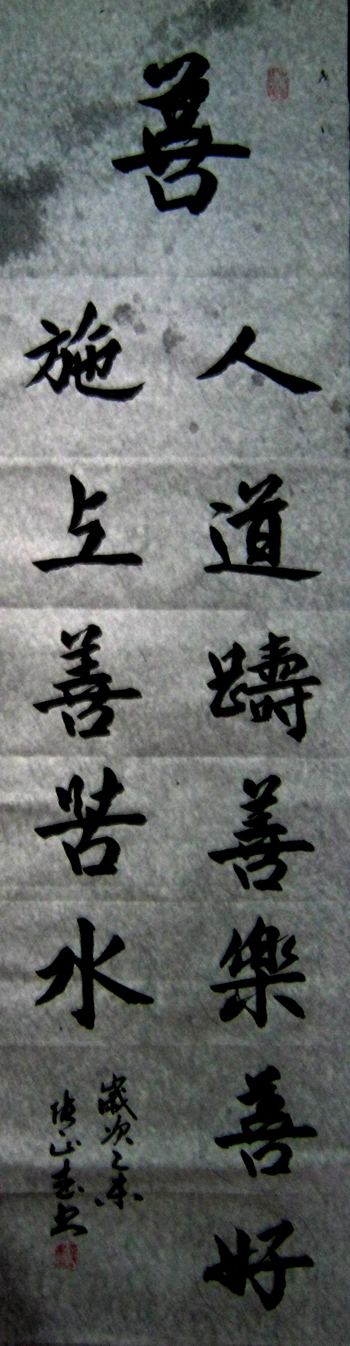 善
人道躊善樂善好
施上善若水
歲次乙未